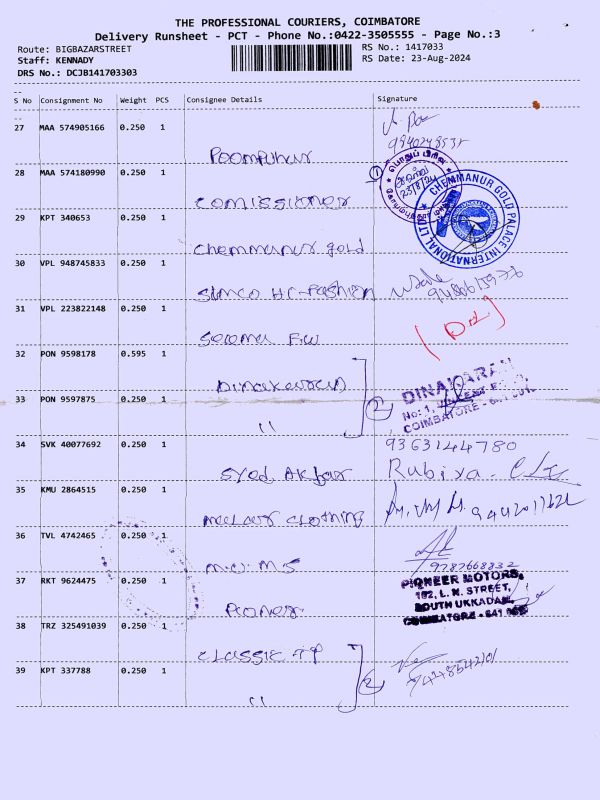 THE PROFESSIONAL COURIERS, COIMBATORE
Delivery Runsheet - PCT - Phone No.:0422-3505555 - Page No.:3
Route: BIGBAZARSTREET
RS No.: 1417033
Staff: KENNADY
RS Date: 23-Aug-2024
DRS No.: DCJB141703303
S No Consignment No Weight PCS Consignee Details Signature
27 MAA 574905166 0.250 1
Poompuhar
28 MAA 574180990 0.250 1
Comissioner
பொதுப் பிரிவு
23/8/24
CHEMMANUR GOLD PALACE INTERNATIONAL LTD
29 KPT 340653 0.250 1
Chemmanur gold
30 VPL 948745833 0.250 1
Simco Hi-Fashion
31 VPL 223822148 0.250 1
32 PON 9598178 0.595 1
Dinakaran
33 PON 9597875 0.250 1
"
2
DINAKARAN
No: 1,
COIMBATORE -
34 SVK 40077692 0.250 1
9363144780
Syed Akbar
Rubiya.
35 KMU 2864515 0.250 1
Clothing
36 TVL 4742465 0.250 1
M.U.M.S
9787668832
37 RKT 9624475 0.250 1
Pioneer
PIONEER MOTORS,
182, L. N. STREET,
SOUTH UKKADAM,
COIMBATORE - 641
38 TRZ 325491039 0.250 1
Classic TP
39 KPT 337788 0.250 1
"
2